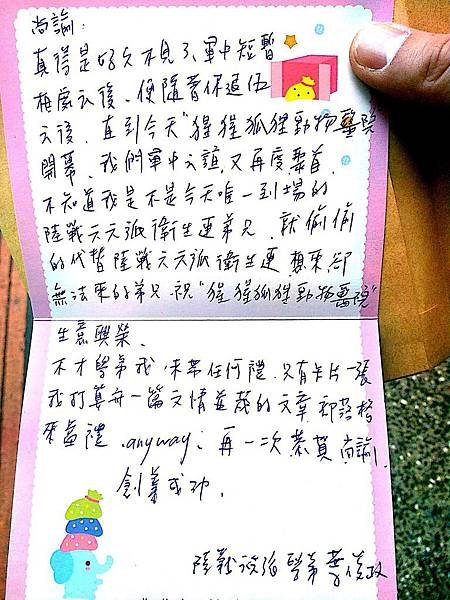 尚諭：
真得是好久不見了,軍中短暫
相處之後、便隨著你退伍
之後、直到今天"猩猩狐狸動物醫院
開幕、我們軍中之誼,又再度聚首
不知道我是不是今天唯一到場的
陸戰六六派衛生連弟兄、就偷偷
的代替陸戰六六派衛生連 想來卻
無法來的弟兄.祝"猩猩狐狸動物醫院"
生意興榮、
不才學弟我,未帶任何禮.只有卡片一張
我打算弄一篇文情並茂的文章、部落格
來當禮.anyway；再一次恭賀 尚諭、
創業成功.
陸戰 學弟